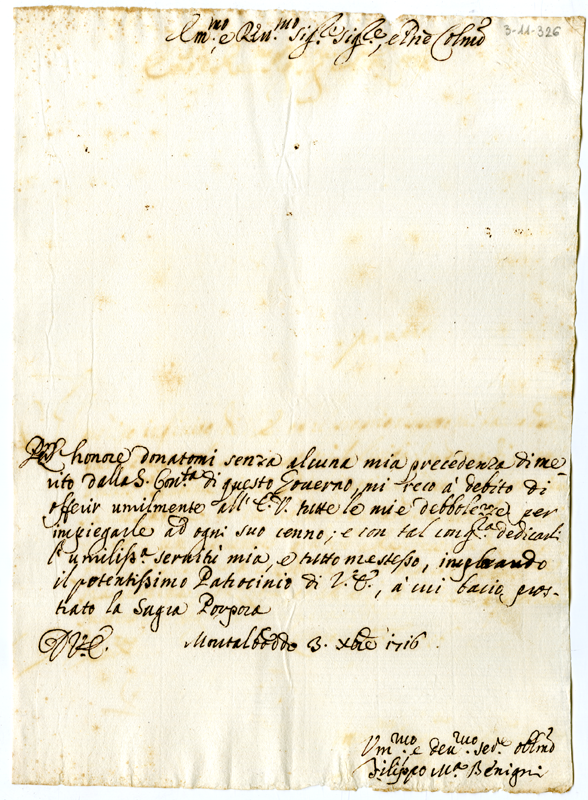 Em.mo e Rev.mo Sig.re Sig.re, e P̃ne Colmo
3-11-326
honore donatomi senza alcuna mia precedenza di me-
rito dalla S. Con.ta di questo Governo, mi reco à debito di
offerir umilmente all' E.V. tutte le mie debbolezze per
impiegarle ad ogni suo cenno, e con tal dedicarli
l' umiliss.a servitù mia, e tutto me stesso, implorando
il potentissimo Patrocinio di V.E., à cui bacio pros-
trato la Sagra Porpora
D.V.E. Montalboddo 3. Xbre 1716
Um.mo e dev.mo ser.e obl.mo
Filippo M.a Benigni